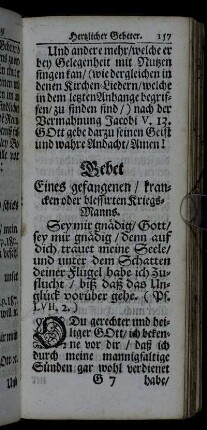 Hertzlicher Gebeter. 157
Und andere mehr/welche er
bey Gelegenheit mit Nutzen
singen kan/ (wie dergleichen in
denen Kirchen-Liedern/welche
in dem letzten Anhange begrif-
fen/ zu finden sind/) nach der
Vermahnung Jacobi V. 13.
GOtt gebe darzu seinen Geist
und wahre Andacht/Amen!
Gebet
Eines gefangenen / kran-
cken oder blessirten Kriegs-
Manns.
Sey mir gnädig/ Gott/
sey mir gnädig/ denn auf
dich trauet meine Seele/
und unter dem Schatten
deiner Flügel habe ich Zu-
flucht / biß daß das Un-
glück vorüber gehe. (Ps.
LVII, 2.)
O Du gerechter und hei-
liger GOtt/ ich beken-
ne vor dir / daß ich
durch meine mannigfaltige
Sünden gar wohl verdienet
G 7 habe/